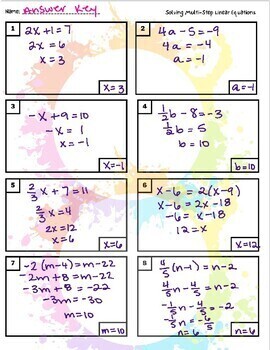 Name: Answer Key Solving Multi-Step Linear Equations
1
2x+1=7
2x=6
x=3
x=3
2
4a-5=-9
4a=-4
a=-1
a=-1
3
-x+9=10
-x=1
x=-1
x=-1
4
1/2b-8=-3
1/2b=5
b=10
b=10
5
2/3x+7=11
2/3x=4
2x=12
x=6
x=6
6
x-6=2(x-9)
x-6=2x-18
-6=x-18
12=x
x=12
7
-2(m-4)=m-22
-2m+8=m-22
-3m+8=-22
-3m=-30
m=10
m=10
8
4/5(n-1)=n-2
4/5n-4/5=n-2
-1/5n-4/5=-2
-1/5n=-6/5
n=6
n=6